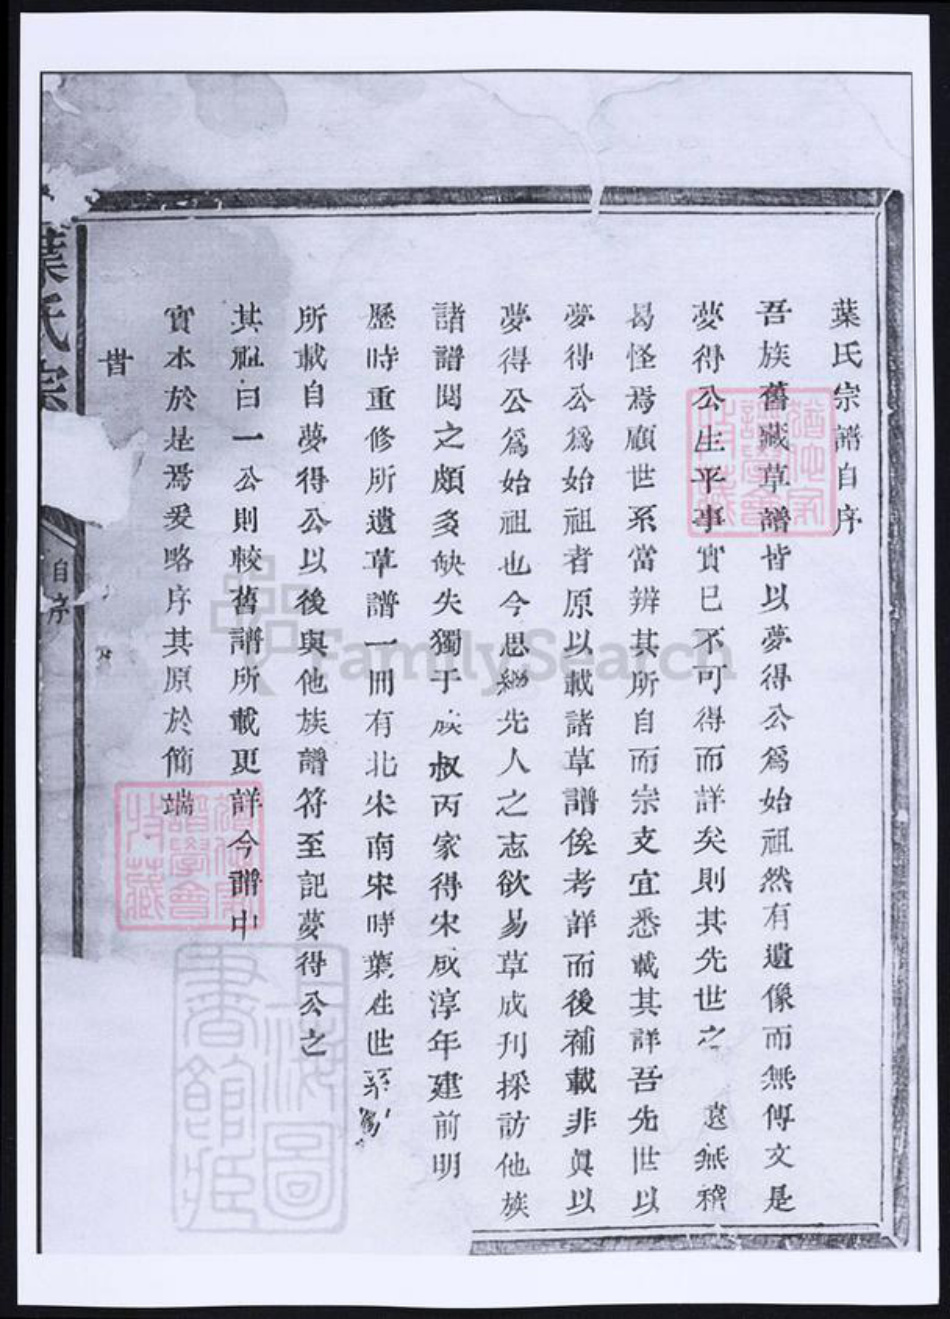 葉氏宗譜自序
吾族舊藏草譜皆以夢得公爲始祖然有遺像而無傳文是
夢得公生平事實已不可得而詳矣則其先世之遠無稽
曷怪焉顧世系當辨其所自而宗支宜悉載其詳吾先世以
夢得公爲始祖者原以載諸草譜俟考詳而後補載非眞以
夢得公爲始祖也今思繼先人之志欲易草成刋採訪他族
諸譜閱之頗多缺失獨于族叔丙家得宋咸淳年建前明
歷時重修所遺草譜一冊有北宋南宋時葉姓世系
所載自夢得公以後與他族譜符至記夢得公之
其祖曰一公則較舊譜所載更詳今譜中
實本於是焉爰略序其原於簡端
旹
葉氏宗
自序
FamilySearch
猶他家譜學會收藏
猶他家譜學會收藏
上海圖書館藏